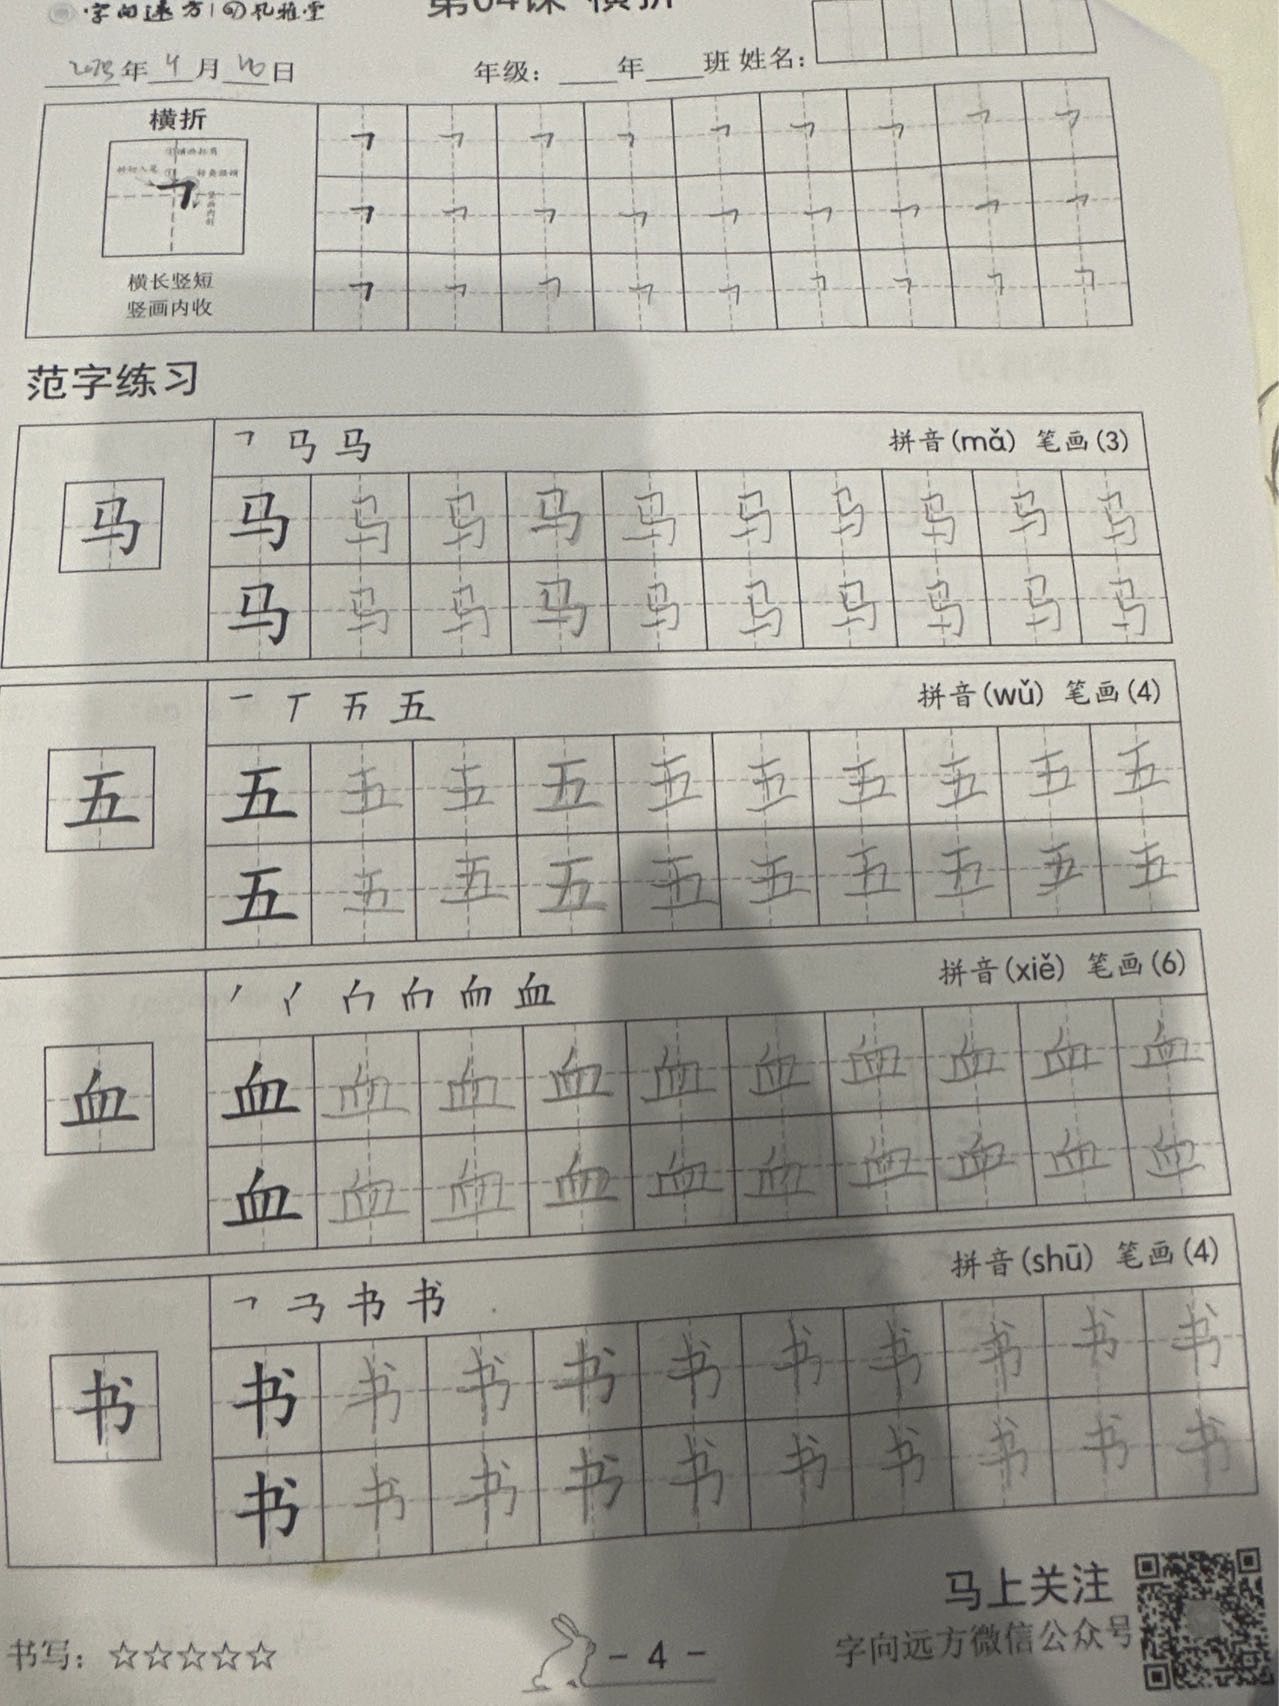 字向远方|孔雅堂
第04课 横折
年4月 日 年级：____年____班 姓名：
横折
㇕ ㇕ ㇕ ㇕ ㇕ ㇕ ㇕ ㇕ ㇕
㇕ ㇕ ㇕ ㇕ ㇕ ㇕ ㇕ ㇕ ㇕
横长竖短
竖画内收
㇕ ㇕ ㇕ ㇕ ㇕ ㇕ ㇕ ㇕ ㇕
范字练习
马
㇕ 马 马 拼音(mǎ) 笔画(3)
马 马 马 马 马 马 马 马 马 马
马 马 马 马 马 马 马 马 马 马
五
一 丅 五 拼音(wǔ) 笔画(4)
五 五 五 五 五 五 五 五 五 五
五 五 五 五 五 五 五 五 五 五
血
血 拼音(xiě) 笔画(6)
血 血 血 血 血 血 血 血 血 血
血 血 血 血 血 血 血 血 血 血
书
㇕ 书 拼音(shū) 笔画(4)
书 书 书 书 书 书 书 书 书 书
书 书 书 书 书 书 书 书 书 书
马上关注
字向远方微信公众号
书写：☆☆☆☆☆
- 4 -